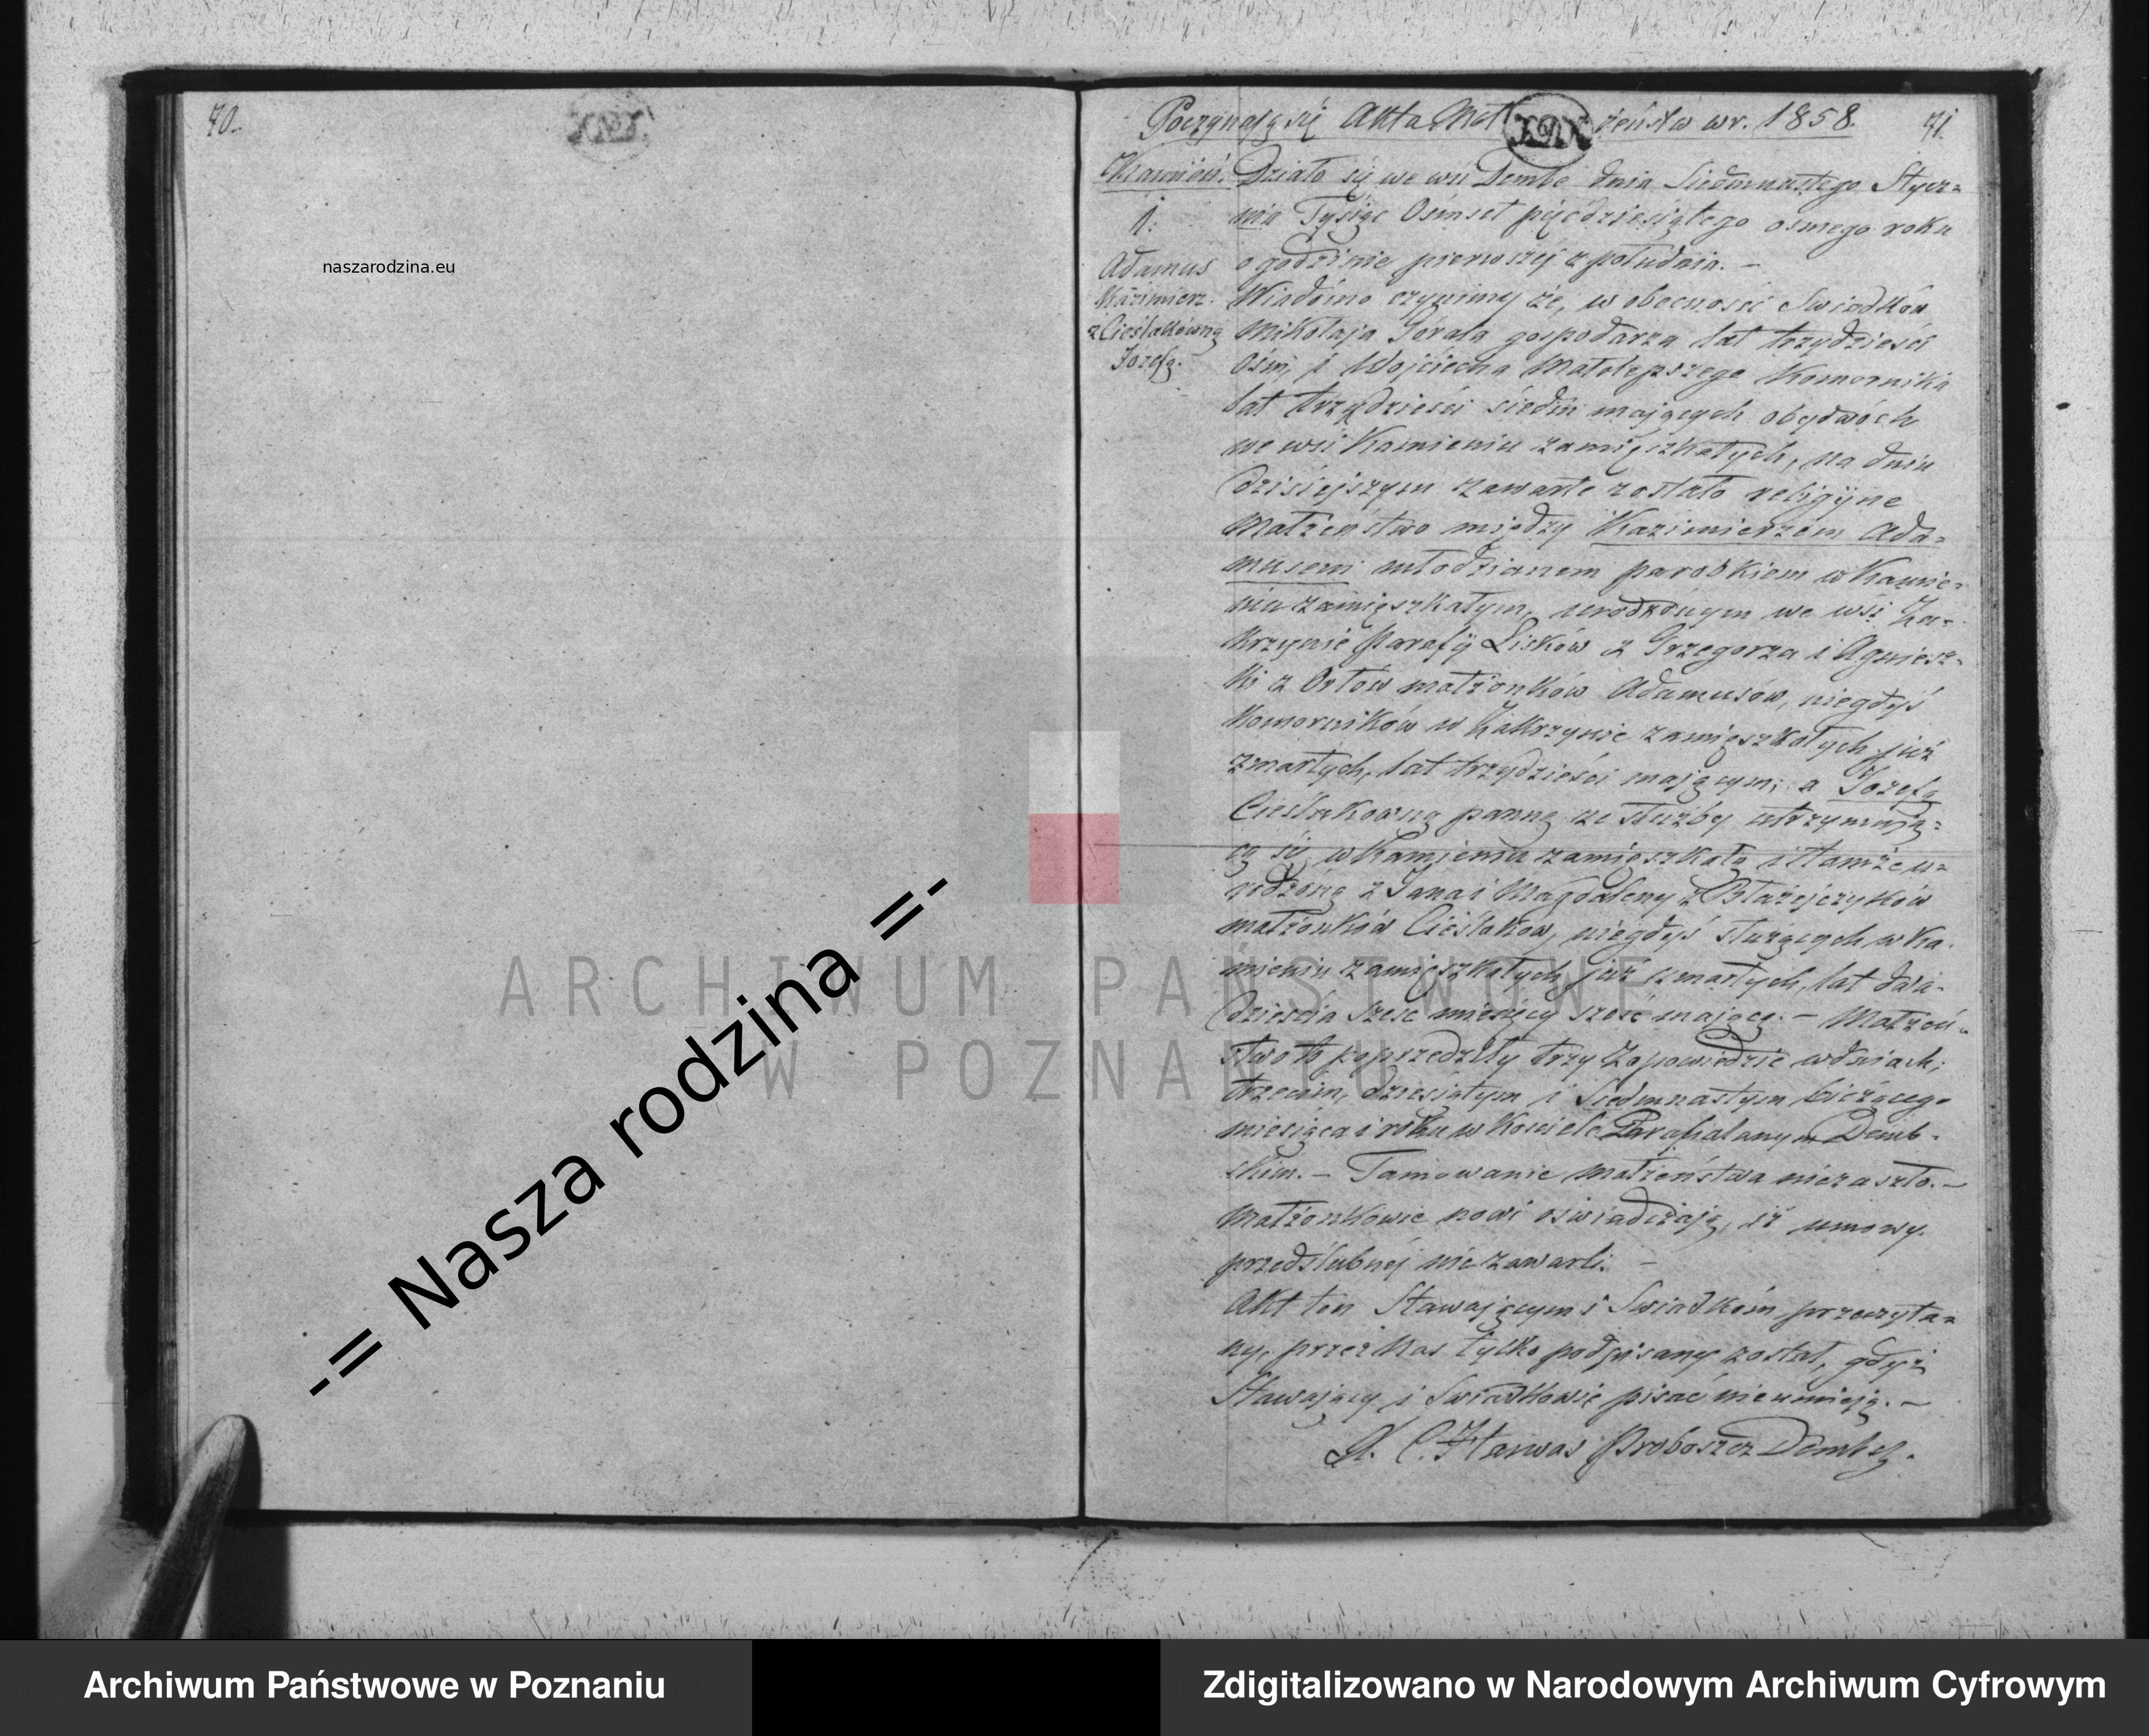 70.
naszarodzina.eu
-= Nasza rodzina =-
Poczynają się Akta Mał żeństw w r. 1858. 71.
Kamień.
1.
Adamus
Kazimierz
z Cieślakówną
Józefą.
Działo się we wsi Dembe dnia Siedmnastego Stycz=
nia Tysiąc Ośmset pięćdziesiątego osmego roku
o godzinie pierwszéj z południa. –
Wiadomo czynimy że, w obecności Swiadków
Mikołaja Górala gospodarza lat trzydzieści
ośm, i Wojciecha Małolepszego Komornika
lat trzydzieści siedm mających obydwóch
we wsi Kamieniu zamięszkałych, na dniu
dzisiejszym zawarte zostało religijne
Małżeństwo między Kazimierzem Ada=
musem młodzianem parobkiem w Kamie=
niu zamięszkałym, urodzonym we wsi Za=
krzynie Parafij Lisków z Grzegorza i Agniesz=
ki z Orłów małżonków Adamusów, niegdyś
Komorników w Zakrzynie zamięszkałych już
zmarłych, lat trzydzieści mającym; a Józefą
Cieślakowną panną ze służby utrzymują=
cą się w Kamieniu zamięszkałą i tamże u=
rodzoną z Jana i Magdaleny z Błażejczyków
małżonków Cieślaków, niegdyś służących w Ka=
mieniu zamięszkałych już zmarłych, lat dwa=
dzieścia sześć miesięcy sześć mającą. – Małżeń=
stwo to poprzedziły trzy Zapowiedzie w dniach:
trzecim, dziesiątym i Siedmnastym bieżącego
miesiąca i roku w Kościele Parafialanym Demb=
skim. – Tamowanie małżeństwa niezaszło. –
Małżonkowie nowi oświadczają, iż umowy
przedślubnéj nie zawarli. –
Akt ten Stawającym i Swiadkom przeczyta=
ny, przez Nas tylko podpisany został, gdyż
Stawający i Swiadkowie pisać nieumieją. –
X. C. Harwas Proboszcz Dembsk.
ARCHIWUM PAŃSTWOWE
W POZNANIU
Archiwum Państwowe w Poznaniu
Zdigitalizowano w Narodowym Archiwum Cyfrowym